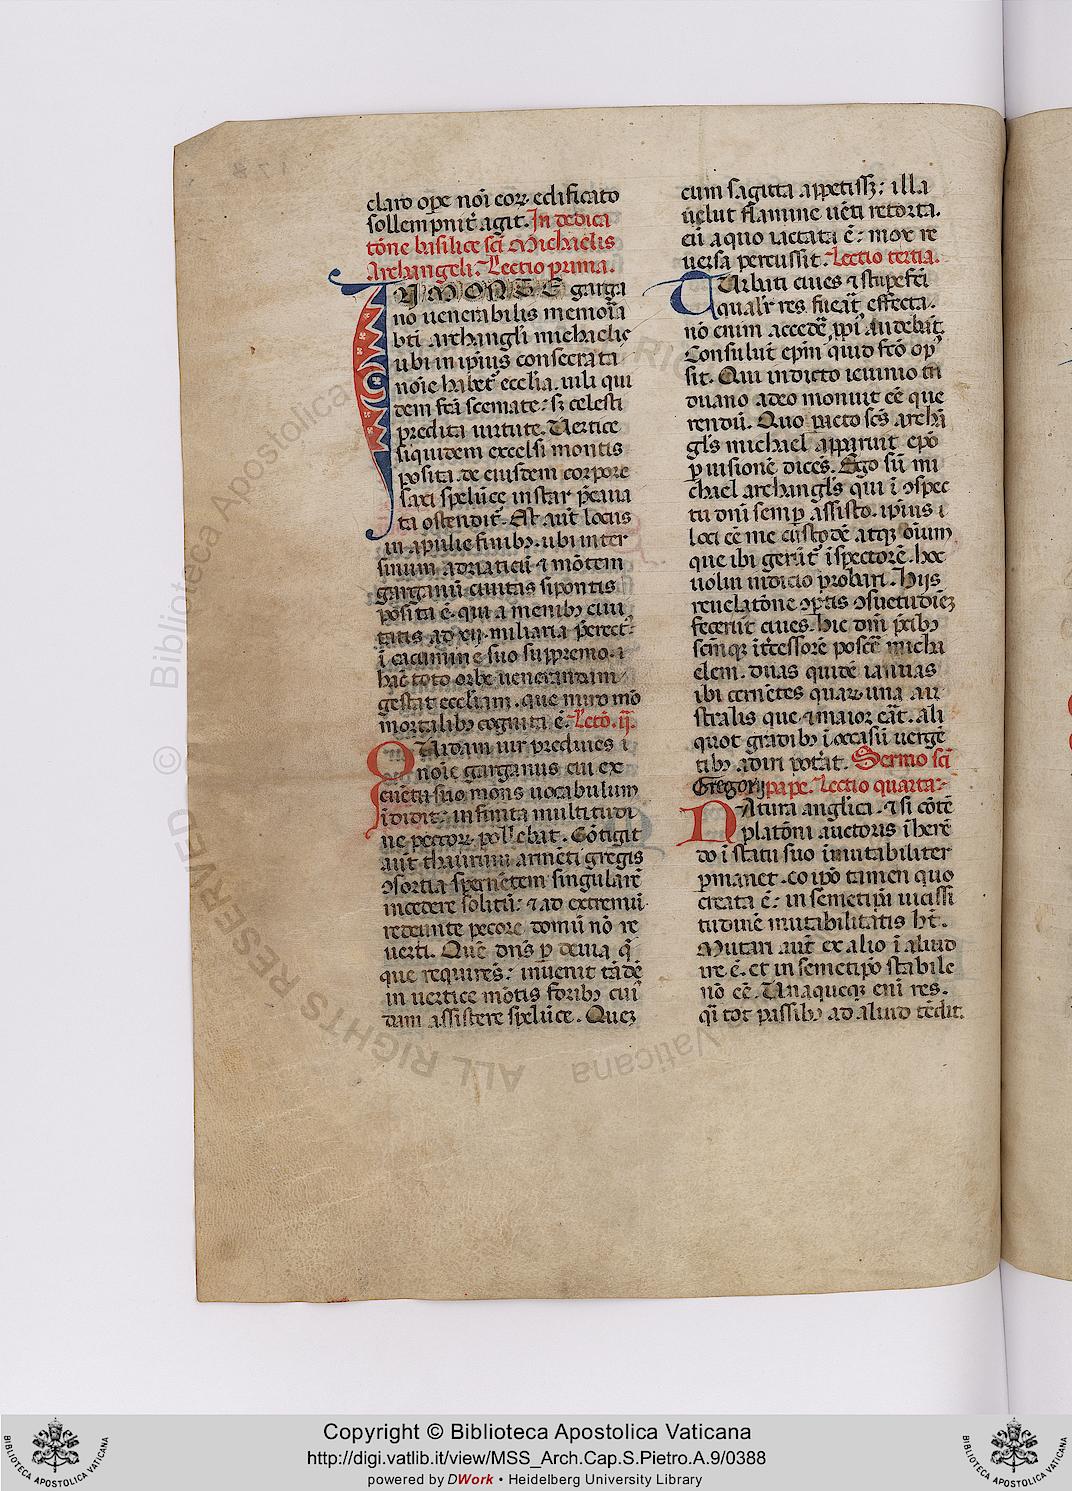 claro ope̅ noi̅ eoꝝ edificato
sollempnit̉ agit. In dedica
to̅ne basilice sc̅i Michaelis
Archangeli. Lectio prima.
IN MONTE garga
no uenerabilis memoria
bt̅i archangl̅i michaelis
ubi in ip̅ius consecrata
no̅ie habet̉ eccl̅ia. uili qui
dem fc̅a scemate: sꝫ celesti
predita uirtute. Vertice
siquidem excelsi montis
posita. de eiusdem corpore
saxi spelu̅ce instar p̅caua
ta ostendit̉. Est aut̅ locus
in apulie finibꝫ. ubi inter
sinum adriaticu̅ ⁊ mo̅tem
garganu̅ ciuitas sipontis
posita e̅. qui a menibꝫ ciui
tatis ad xij. miliaria p̅erect̉:
i̅ cacumine suo supremo. ⁊
hac̅ toto orbe uenerandam
gestat eccl̅iam. que miro mo̅
mortalibꝫ cognita e̅. Lect̅o. ij.
Quidam uir prediues i̅
no̅ie garganus cui ex
eue̅tu suo mons uocabulum
i̅didit: infinita multitudi
ne pecorꝝ pollebat. Co̅tigit
aut̅ thaurum arme̅ti gregis
ↄsortia sperne̅tem singulare̅
incedere solitu̅: ⁊ ad extremu̅
redeunte pecore domu̅ no̅ re
uerti. Que̅ dn̅s ꝑ deuia q̅
que require̅s: inuenit ta̅de̅
in uertice mo̅tis foribꝫ cuỉ
dam assistere spelu̅ce. Queꝫ
cum sagitta appetissꝫ: illa
uelut flamine ue̅ti retorta.
eu̅ a quo iactata e̅: mox re
uersa percussit. Lectio tertia.
Turbati ciues ⁊ stupefc̅i
qualit̉ res fuerat̅ effecta.
no̅ enim accede̅ ꝓpỉ audebat̅.
Consulut̅ epm̅ quid fc̅o op̉
sit. Qui indicto ieiunio tri
duano a deo monuit ee̅ que
rendu̅. Quo pacto sc̅s archa̅
gl̅s michael apparuit epo̅
ꝑ uisione̅ dice̅s. Ego su̅ mi
chael archangl̅s qui i̅ ↄspec
tu dni̅ semꝑ assisto. ip̅ius i
loci ee̅ me custode̅ atqꝫ o̅ium
que ibi gerut̅̉ i̅spectore̅. hoc
uolui indicio probari. Hijs
reuelato̅ne ↄptis ↄsuetudi̅eꝫ
feceru̅t ciues. hic dm̅ p̅cibꝫ
sc̅mqꝫ i̅t̅cessore̅ posce̅ micha
elem. duas quide̅ ianuas
ibi cerne̅tes quaꝝ una au
stralis que ⁊ maior ea̅t. ali
quot gradibꝫ i̅ occasu̅ uerge̅
tibꝫ adiri pot̅at. Sermo sc̅i
Gregorij pape. Lectio quarta.
Natura anglica. ⁊ si co̅te̅
platio̅ni auctoris i̅here̅
do i̅ statu suo i̅mutabiliter
ꝑmanet. eo ip̅o tamen quo
creata e̅: in semetip̅a uicissi
tudine̅ mutabilitatis ht̅.
Mutari aut̅ ex alio i̅ aliud
ire e̅. et in semetip̅o stabile
no̅ ee̅. Vnaqueqꝫ eni̅ res.
q̅i tot passibꝫ ad aliud te̅dit.
Copyright © Biblioteca Apostolica Vaticana
http://digi.vatlib.it/view/MSS_Arch.Cap.S.Pietro.A.9/0388
powered by DWork • Heidelberg University Library